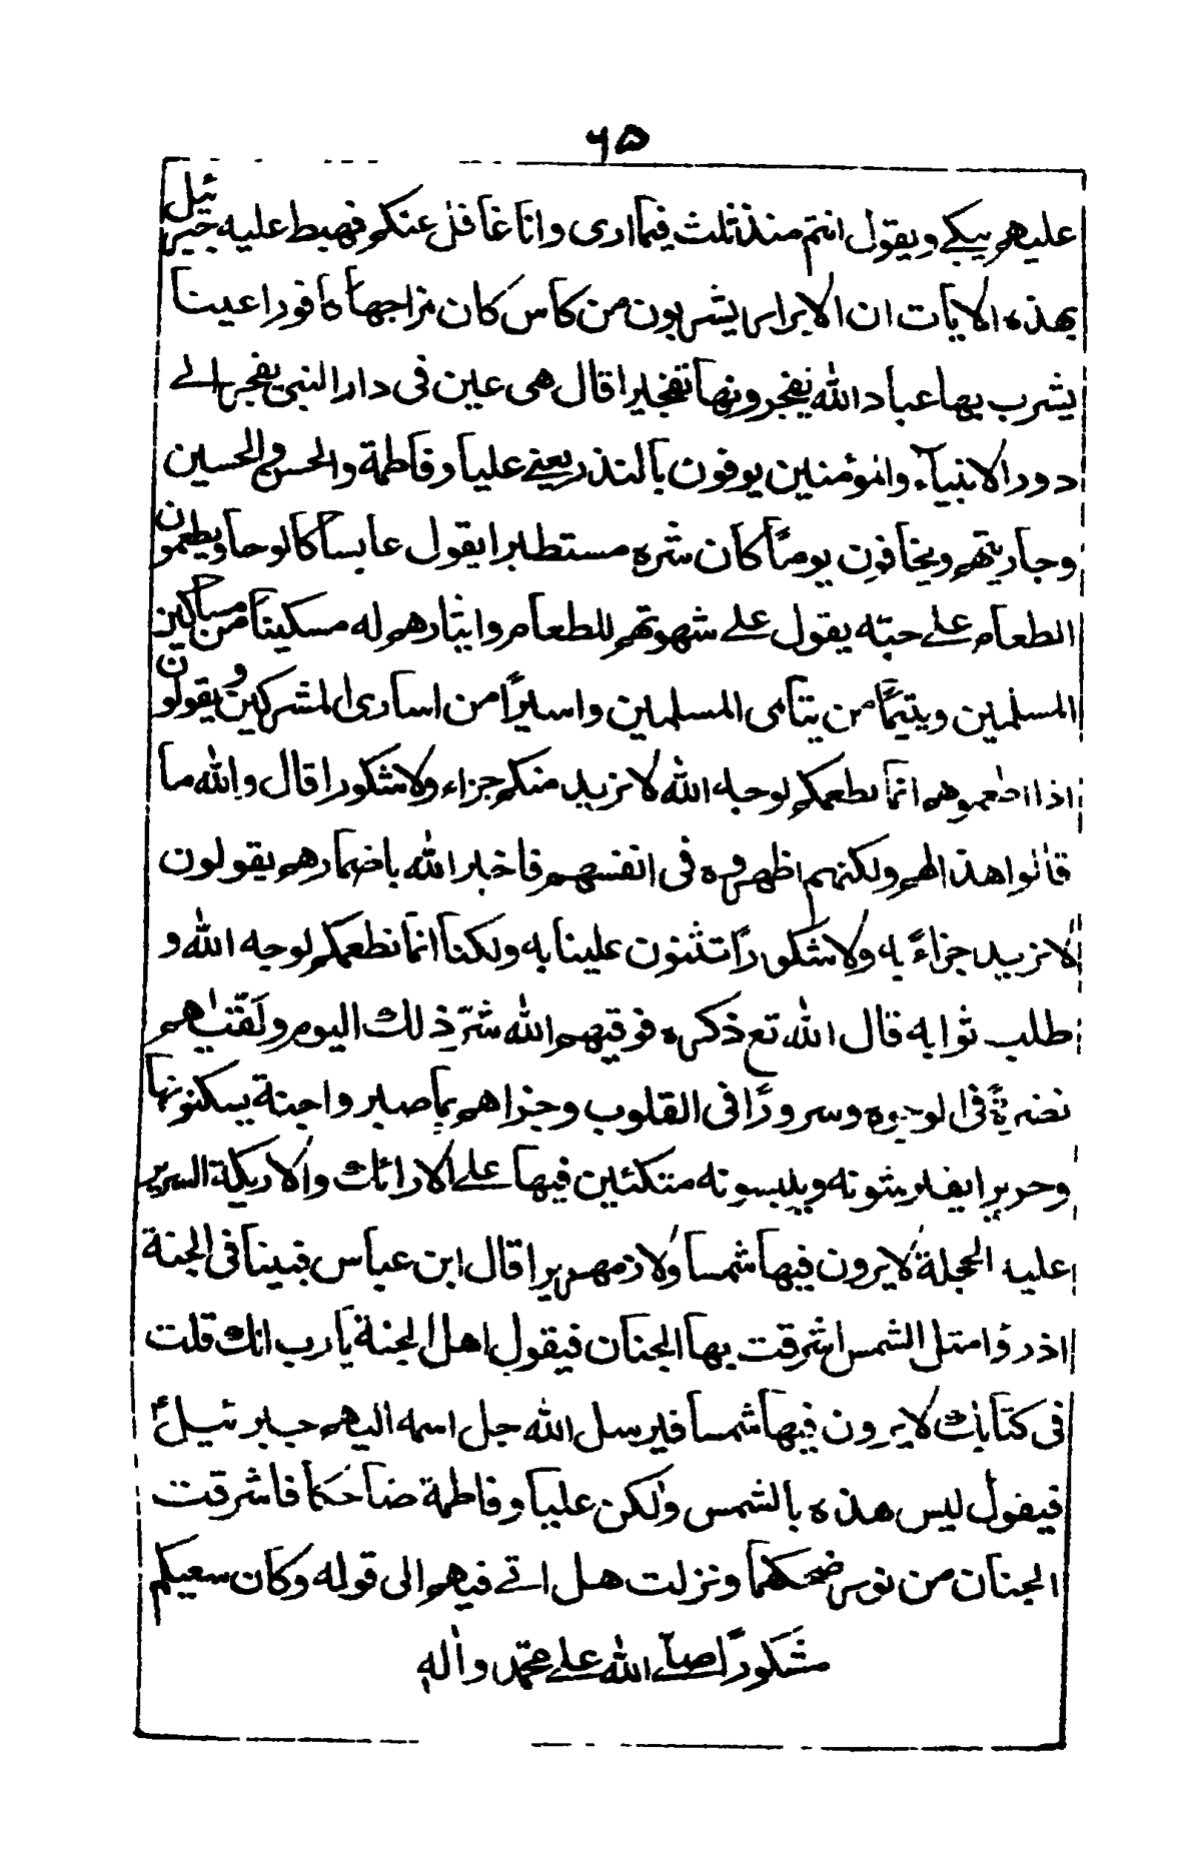 ۶۵
عليهم يبكي ويقول انتم منذ ثلث فيما ارى وانا غافل عنكم فهبط عليه جبرئيل
بهذه الايات ان الابرار يشربون من كاس كان مزاجها كافورا عينا
يشرب بها عباد الله يفجرونها تفجيرا قال هى عين فى دار النبى يفجر الى
دور الانبياء والمؤمنين يوفون بالنذر يعنى عليا وفاطمة والحسن والحسين
وجاريتهم ويخافون يوماً كان شره مستطيرا يقول عابسا كالوحا ويطعمون
الطعام على حبّه يقول على شهوتهم للطعام وايثارهم له مسكيناً من مساكين
المسلمين ويتيمًا من يتامى المسلمين واسيرًا من اسارى المشركين ويقولون
اذا اطعموهم انما نطعمكم لوجه الله لا نريد منكم جزاء ولا شكورا قال والله ما
قالوا هذا لهم ولكنهم اظهروه فى انفسهم فاخبر الله باضمارهم يقولون
لا نريد جزاءً به ولا شكورًا تثنون علينا به ولكنا انما نطعمكم لوجه الله و
طلب ثوابه قال الله تع ذكره فوقيهم الله شرّ ذلك اليوم ولقّيٰهم
نضرةً فى الوجوه وسرورًا فى القلوب وجزاهم بما صبروا جنة يسكنونها
وحريرا يفترشونه ويلبسونه متكئين فيها على الارائك والاريكة السرير
عليه الحجلة لا يرون فيها شمسا ولا زمهريرا قال ابن عباس فبينا فى الجنة
اذ رؤا مثل الشمس اشرقت بها الجنان فيقول اهل الجنة يا رب انك قلت
فى كتابك لا يرون فيها شمسا فيرسل الله جل اسمه اليهم جبرئيلؑ
فيقول ليس هذه بالشمس ولكن عليا وفاطمة ضاحكا فاشرقت
الجنان من نور ضحكهما ونزلت هل اتى فيهم الى قوله وكان سعيكم
مشكورًا صلى الله على محمّد واٰله